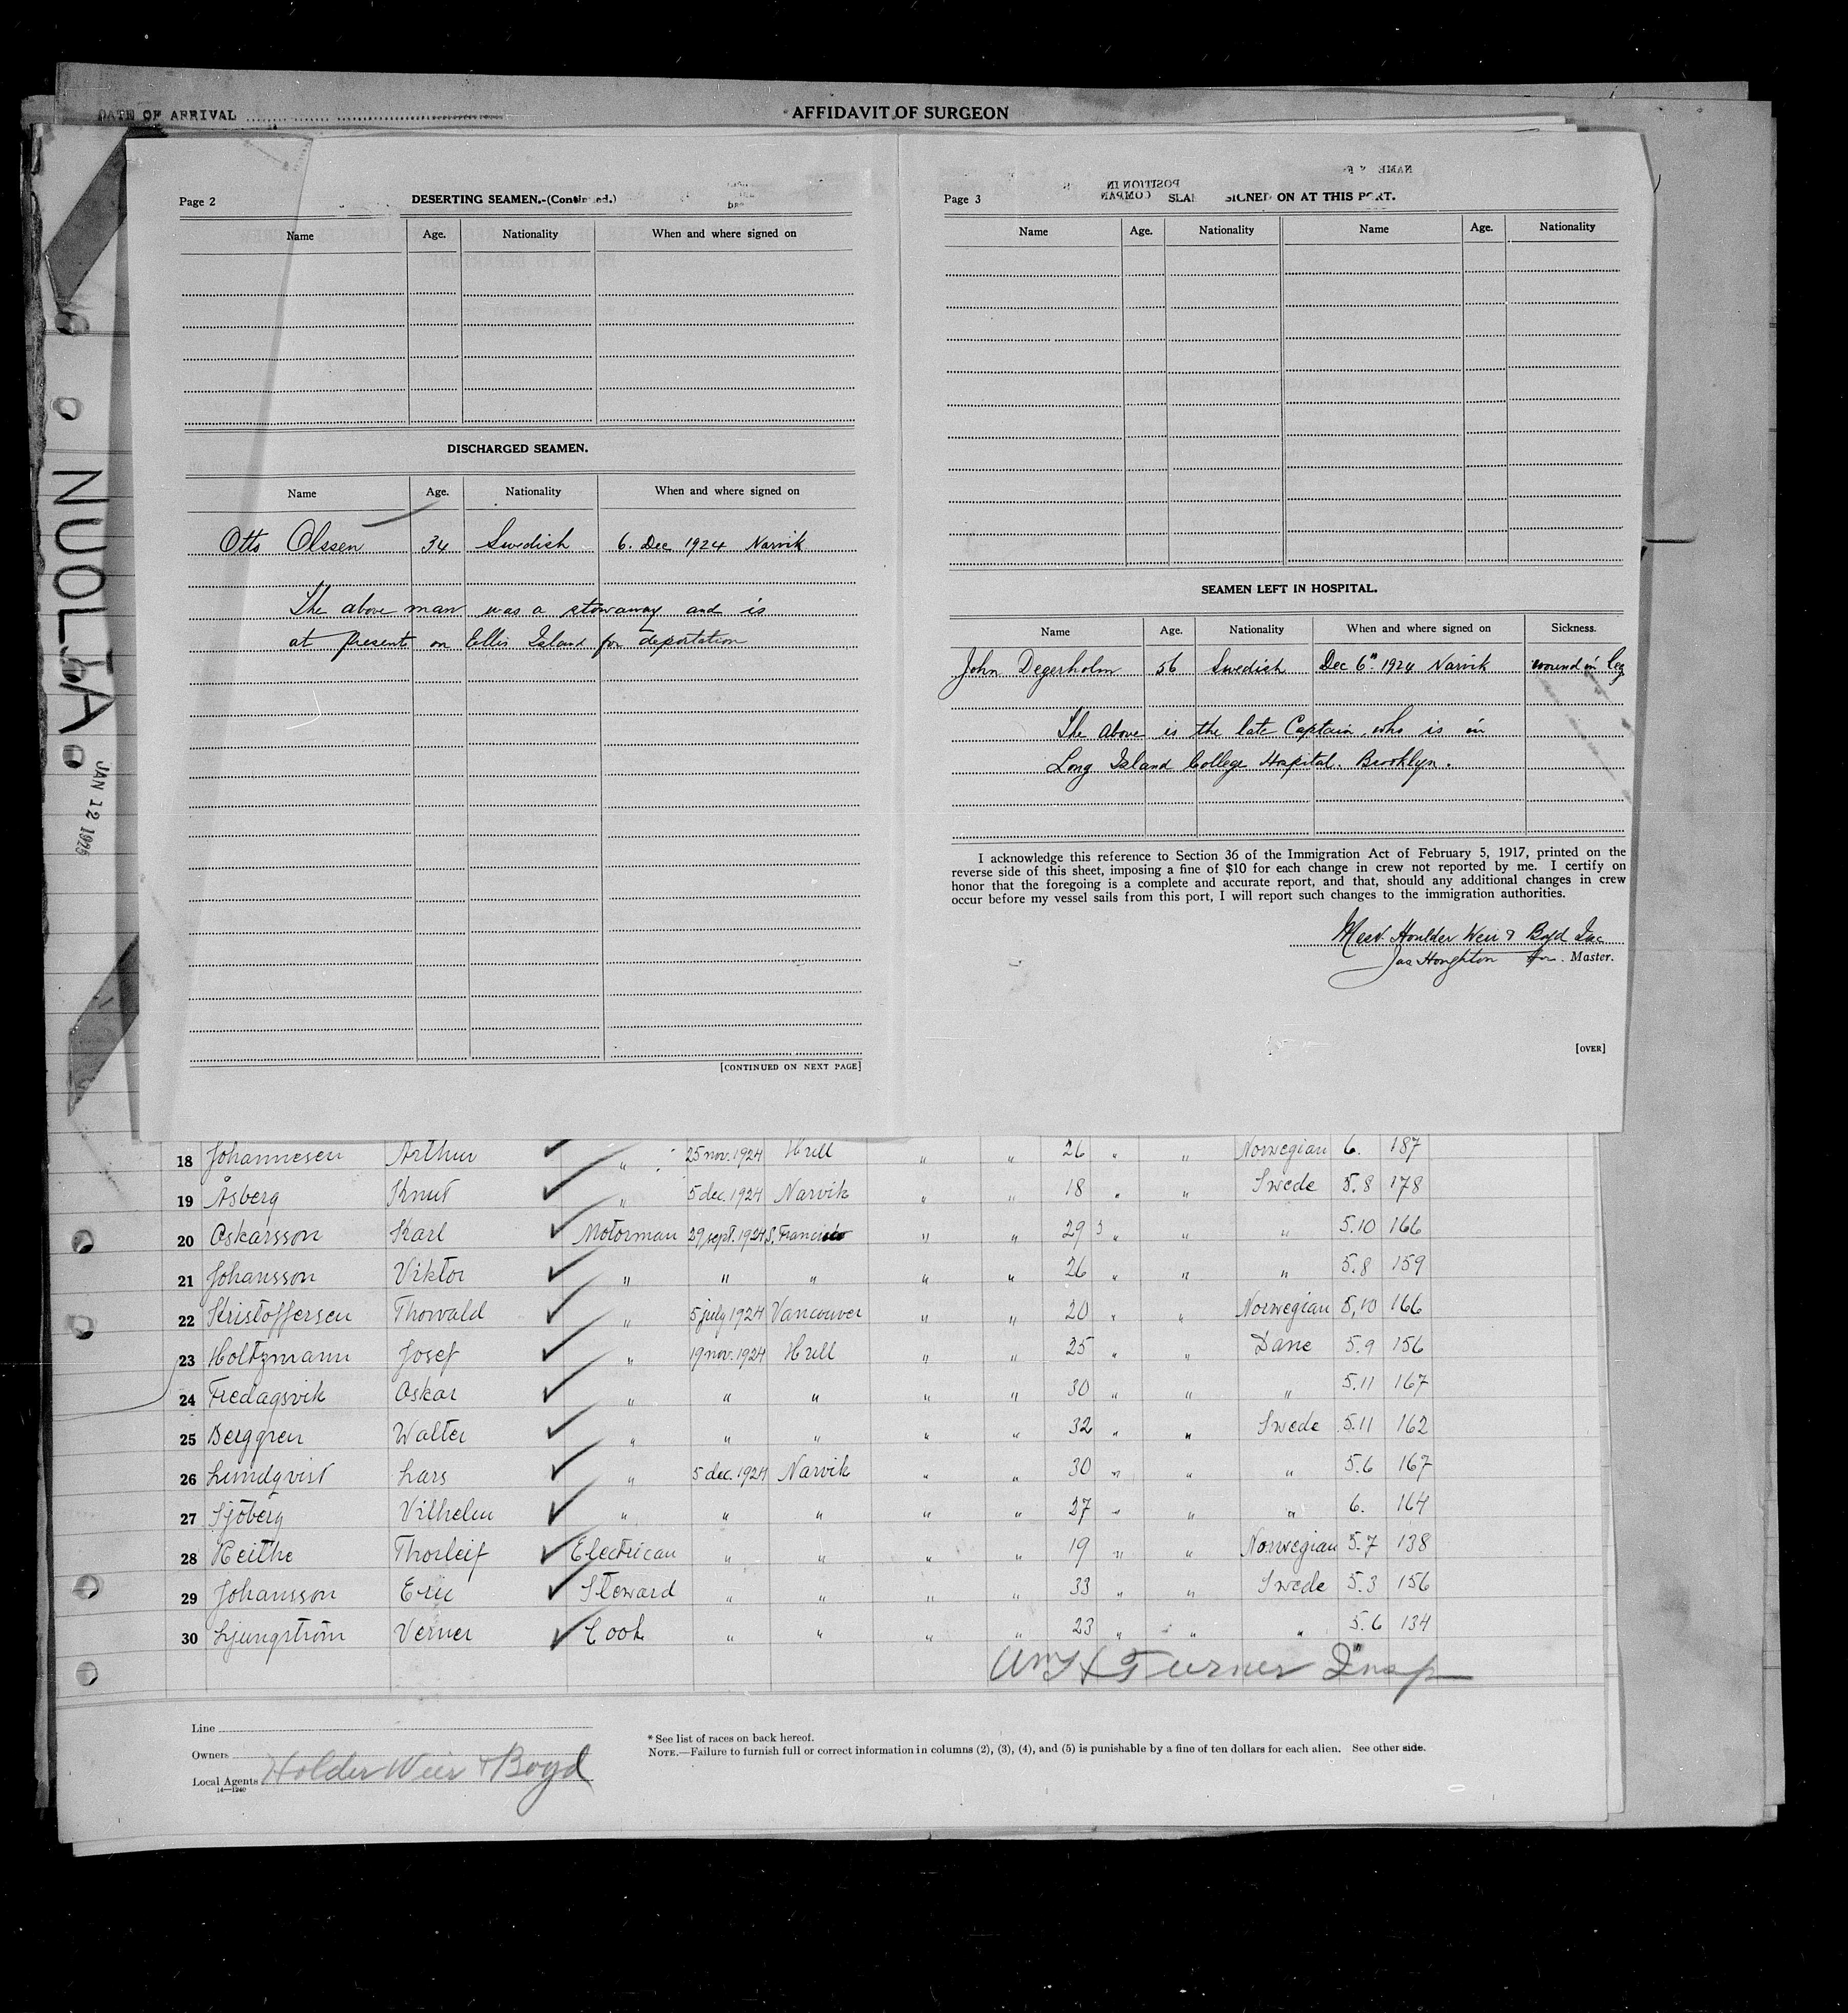 DATE OF ARRIVAL
AFFIDAVIT OF SURGEON
NUOLJA
JAN 12 1925
Page 2
DESERTING SEAMEN.-(Continued.)
Name Age. Nationality When and where signed on
DISCHARGED SEAMEN.
Name Age. Nationality When and where signed on
Otto Olssen 34 Swedish 6. Dec 1924 Narvik
The above man was a stowaway and is
at present on Ellis Island for deportation
[CONTINUED ON NEXT PAGE]
NAME
POSITION IN
COMPAN
Page 3 SIGNED ON AT THIS PORT.
Name Age. Nationality Name Age. Nationality
SEAMEN LEFT IN HOSPITAL.
Name Age. Nationality When and where signed on Sickness.
John Degerholm 56 Swedish Dec 6" 1924 Narvik wound in leg
The above is the late Captain, who is in
Long Island College Hospital. Brooklyn.
I acknowledge this reference to Section 36 of the Immigration Act of February 5, 1917, printed on the
reverse side of this sheet, imposing a fine of $10 for each change in crew not reported by me. I certify on
honor that the foregoing is a complete and accurate report, and that, should any additional changes in crew
occur before my vessel sails from this port, I will report such changes to the immigration authorities.
Houlder Weir & Boyd Inc
Jas Houghton for. Master.
[OVER]
18 Johannesen Arthur " 25 nov. 1924 Hull " " 26 " " Norwegian 6. 187
19 Åsberg Knut " 5 dec. 1924 Narvik " " 18 " " Swede 5.8 178
20 Oskarsson Karl Motorman 29 sept. 1924 S. Francisco " " 29 " " " 5.10 166
21 Johansson Viktor " " " " " 26 " " " 5.8 159
22 Kristoffersen Thorvald " 5 july 1924 Vancouver " " 20 " " Norwegian 5,10 166
23 Holtzmann Josef " 19 nov. 1924 Hull " " 25 " " Dane 5.9 156
24 Fredagsvik Oskar " " " " " 30 " " " 5.11 167
25 Berggren Walter " " " " " 32 " " Swede 5.11 162
26 Lundqvist Lars " 5 dec. 1924 Narvik " " 30 " " " 5.6 167
27 Sjöberg Vilhelm " " " " " 27 " " " 6. 164
28 Reithe Thorleif Electrican " " " " 19 " " Norwegian 5.7 138
29 Johansson Eric Steward " " " " 33 " " Swede 5.3 156
30 Ljungström Verner Cook " " " " 23 " " " 5.6 134
Turner Insp
Line
Owners
Local Agents Holder Weir & Boyd
14—1240
* See list of races on back hereof.
NOTE.—Failure to furnish full or correct information in columns (2), (3), (4), and (5) is punishable by a fine of ten dollars for each alien. See other side.